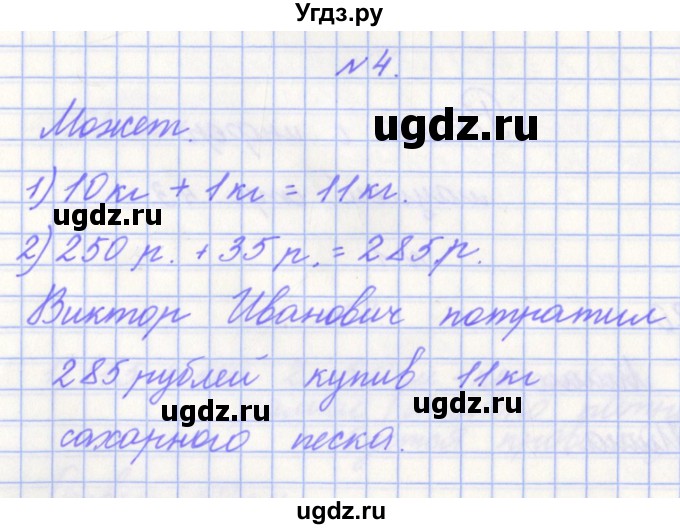 Угдз.ру
№4.
Может.
ugdz.ru
1) 10кг + 1кг = 11кг.
ugdz.ru
ugdz.ru
2) 250 р. + 35 р. = 285р.
Виктор Иванович потратил
285 рублей купив 11кг
ugdz.ru
ugdz.ru
сахарного песка.
ugdz.ru